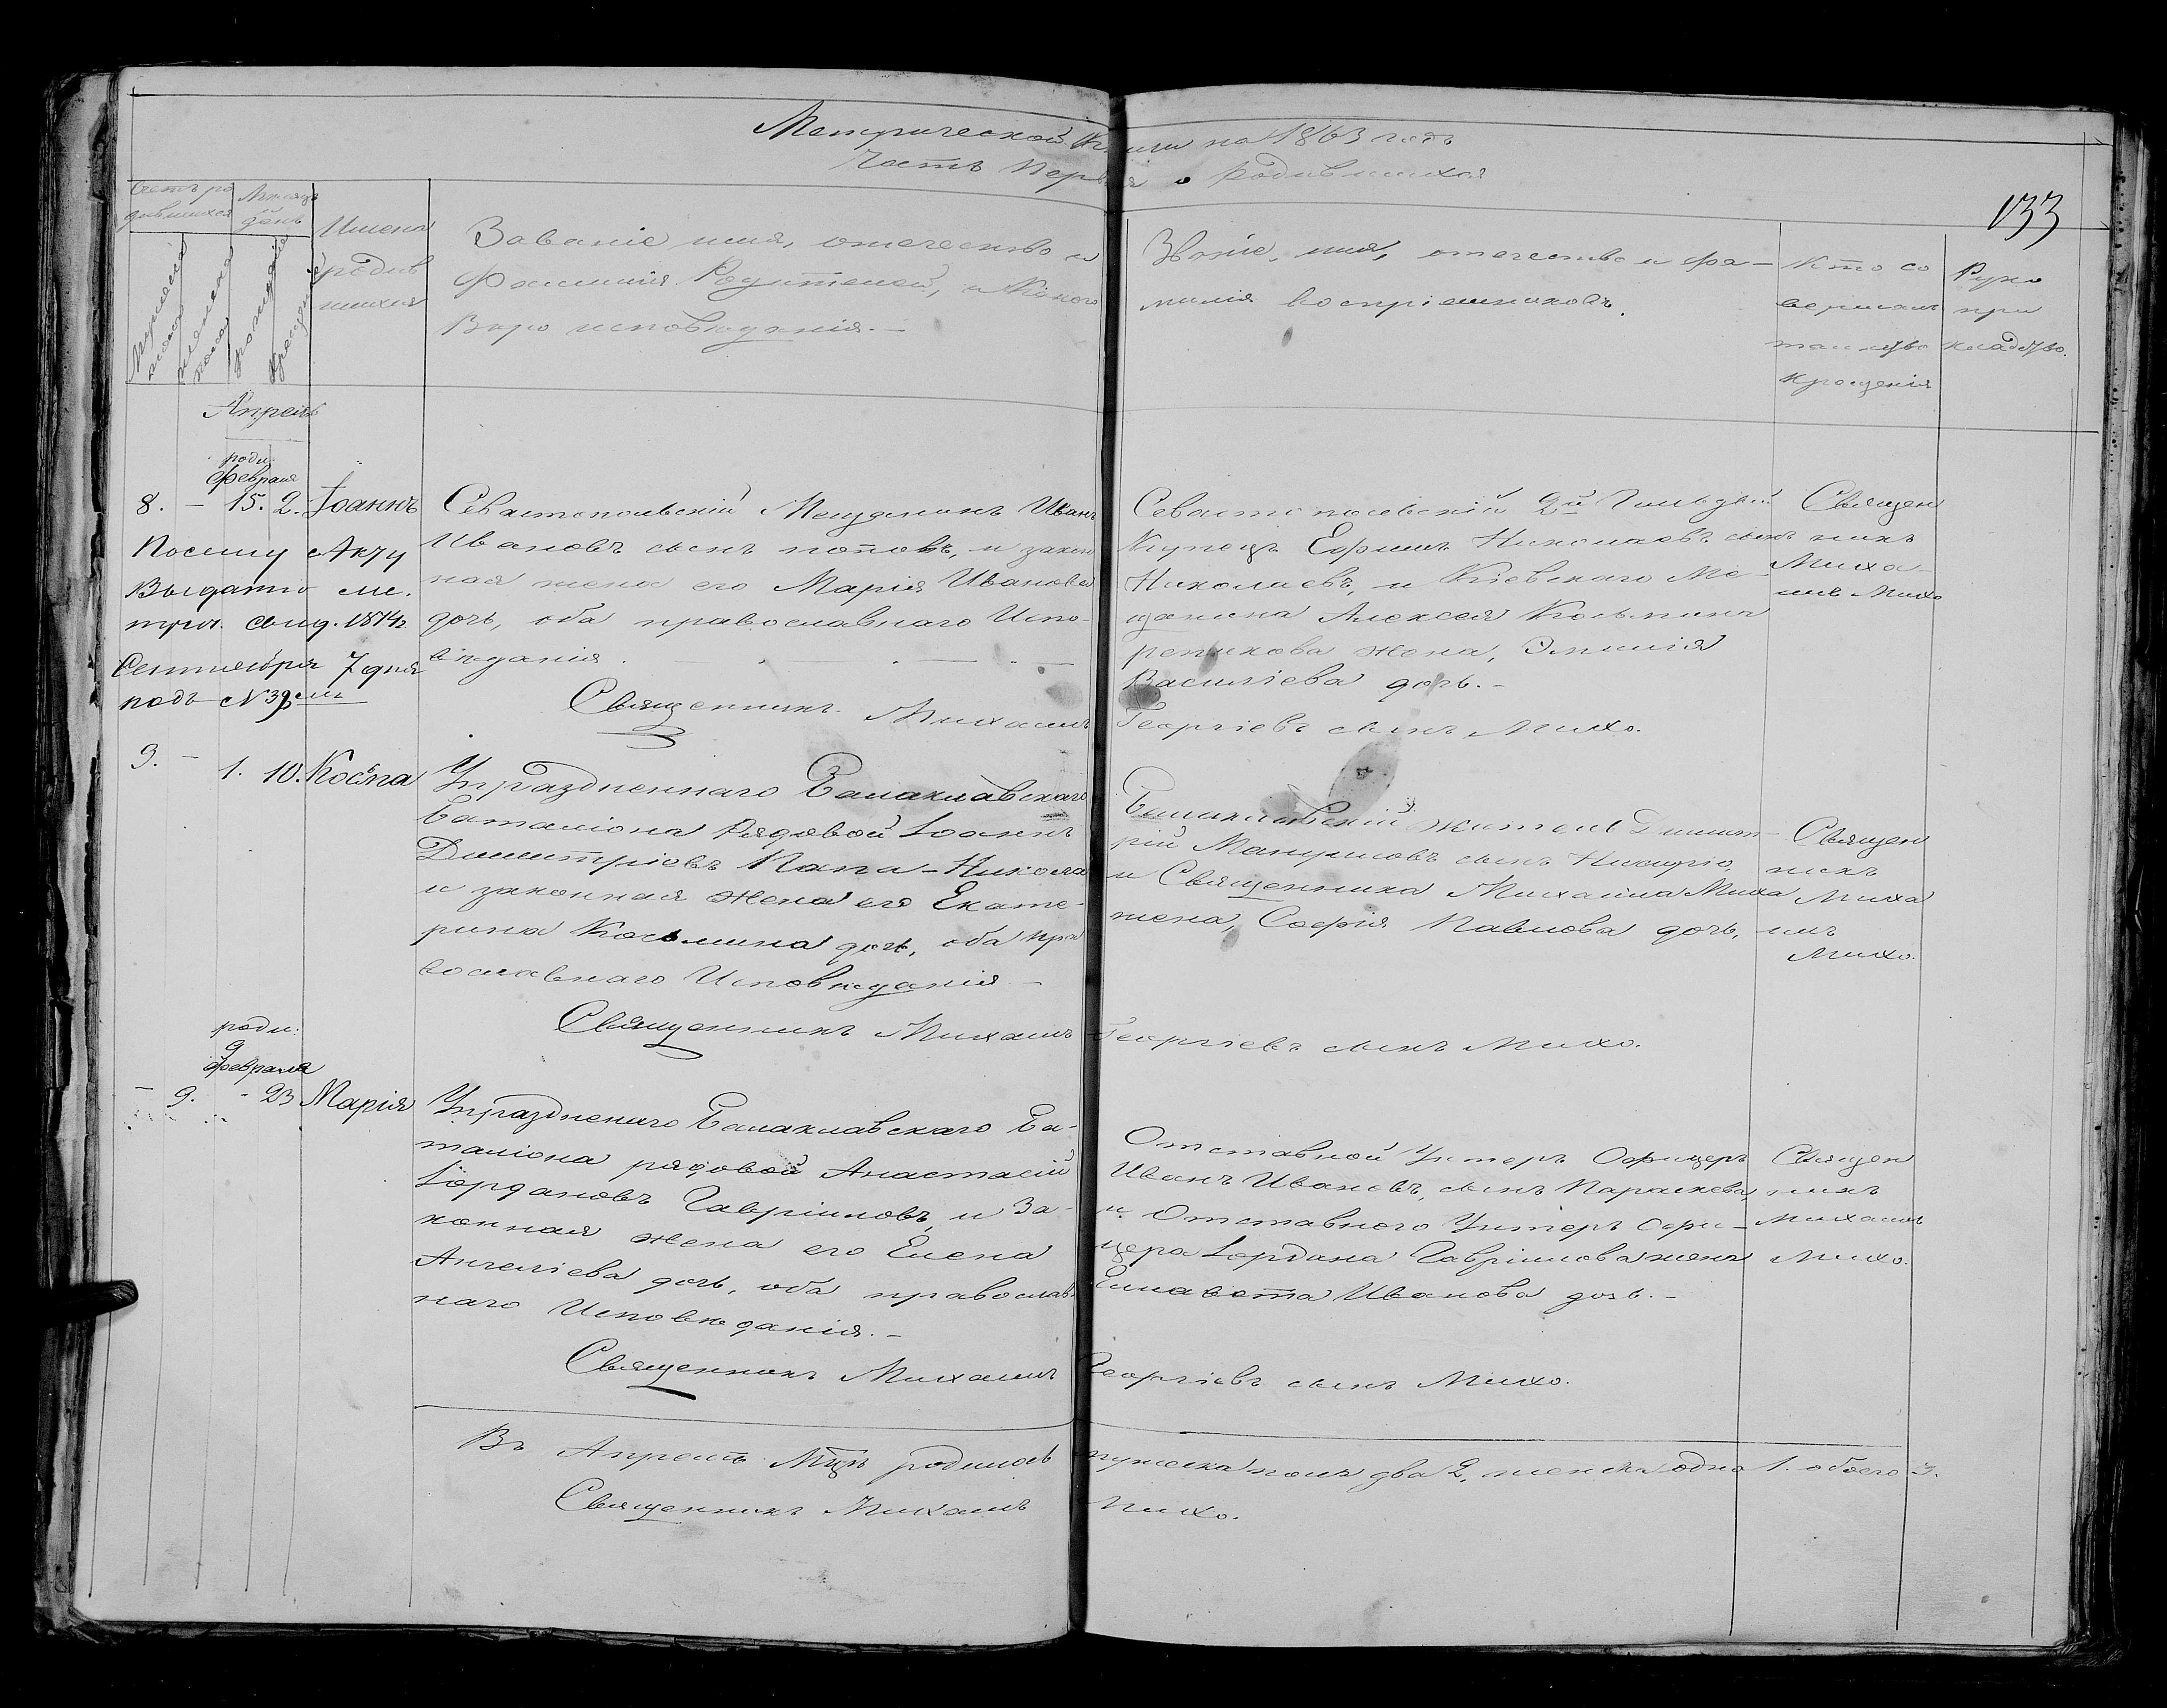 Метрической Книги на 1863 годъ
Часть Первая о Родившихся
133
Счетъ ро
дившихся
Мѣсяцъ
и
день
Мужеска
пола
женска
пола
рожденія
крещенія
Имена
родив
шихся
Званіе имя, отечество и
Фамилія Родителей, и Какого
Вѣро исповѣданія. —
Званіе, имя, отечество и фа-
милія воспріемниковъ.
Кто со
вершалъ
таинство
крещенія
Руко
при
кладство.
Апрель
роди:
Февраля
8. — 15. 2. Іоаннъ
По сему Акту
Выдано ме.
трич. свид. 1874г
Сентября 7 дня
подъ №
Севастопольскій Мещанинъ Иванъ
Ивановъ сынъ поповъ, и закон
ная жена его Марія Иванова
дочь, оба православнаго Испо-
вѣданія.
Священникъ Михаилъ Георгіевъ сынъ Михо.
Севастопольскій 2й Гильдіи
Купецъ Ефимъ Николаевъ сынъ
Николаевъ, и Кіевскаго Ме-
щанина Алексея Косьмина
жена, Эмилія
Василіева дочь. —
Священ
никъ
Миха-
илъ Михо
9. — 1. 10. Косма
Упраздненнаго Балаклавскаго
Баталіона Рядовой Іоаннъ
Димитріевъ Папа-Никола
и законная жена его Екате-
рина Космина дочь, оба пра
вославнаго Исповѣданія —
Священникъ Михаилъ Георгіевъ сынъ Михо.
Балаклавскій житель Димит-
рій сынъ
и Священника Михаила Михо
жена, Софія Павлова дочь,
Священ
никъ
Миха
илъ
Михо.
роди:
9
Февраля
— 9. - 23 Марія
Упраздненнаго Балаклавскаго Ба-
таліона рядовой Анастасій
Іордановъ Гавриіловъ, и За-
конная жена его Елена
Ангеліева дочь, оба православ-
наго Исповѣданія. —
Священникъ Михаилъ Георгіевъ сынъ Михо.
Отставной Унтеръ Офицеръ
Иванъ Ивановъ, сынъ Параскева,
и Отставного Унтеръ Офи-
цера Іордана Гавриілова жена
Елисавета Иванова дочь. —
Священ
никъ
Михаилъ
Михо.
Въ Апрелѣ Мцѣ родилось мужеска пола два 2, женска одна 1. обоего 3.
Священникъ Михаилъ Михо.